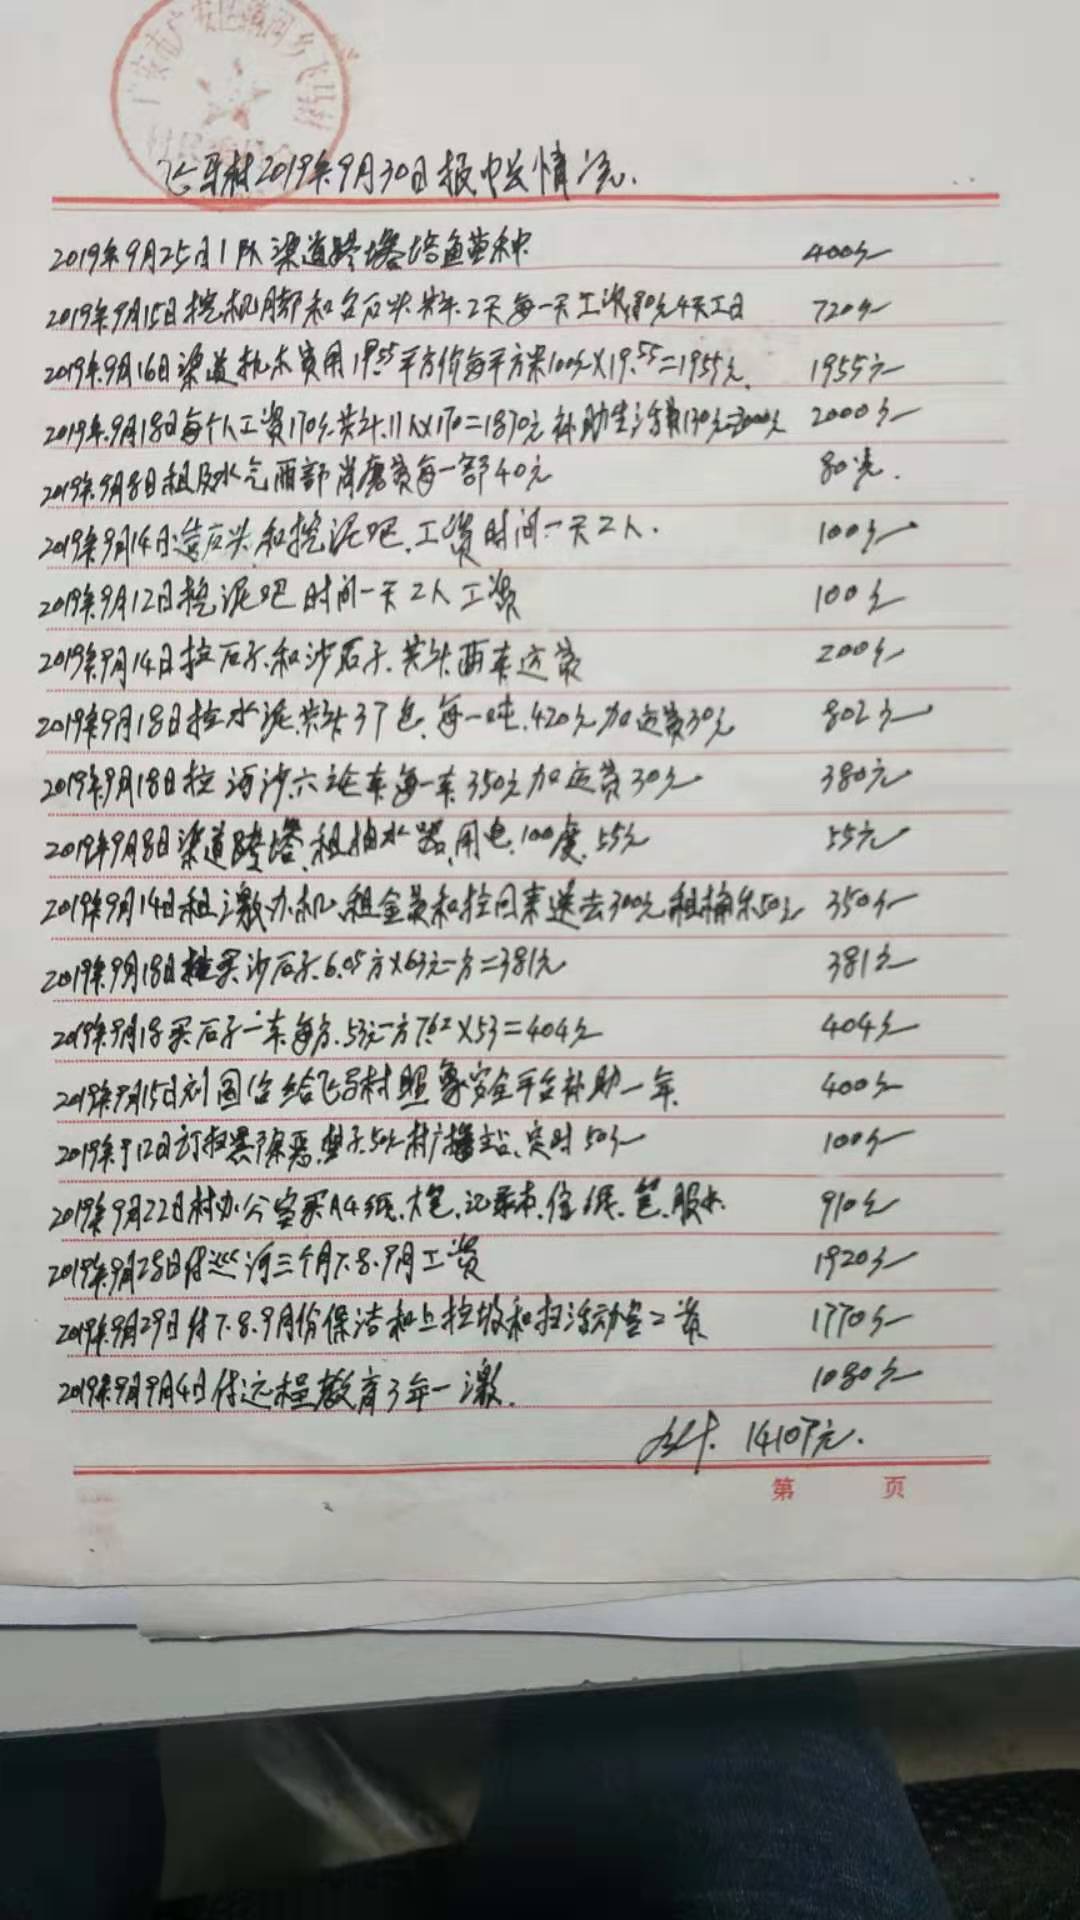 广安市广安区 乡飞马村
村民委员会
飞马村2019年9月30日报中发情况.
2019年9月25日1队渠道垮塌 鱼苗种 400元
2019年9月15日挖机脚和台石头共计2天每一天工资180元4天工日 720元
2019年9月16日渠道 木费用19.55平方价每平方米100元×19.55=1955元 1955元
2019年9月18日每个人工资170元共计11人×170=1870元补助生活费130元=2000元 2000元
2019年9月8日租 水 两部 费每一部40元 80元.
2019年9月14日 石头和挖泥吧.工资时间一天2人. 100元
2019年9月12日挖泥吧时间一天2人工资 100元
2019年9月14日拉石子和沙石子.共计两车运费 200元
2019年9月18日拉水泥共计37包.每一吨.420元加运费30元 802元
2019年9月18日拉河沙六 车每一车350元加运费30元 380元
2019年9月8日渠道垮塌.租抽水器.用电.100度.55元 55元
2019年9月14日租 机.租金费和拉回来送去300元租 50元 350元
2019年9月18日 买沙石子.6.05方×63元一方=381元 381元
2019年9月18买石子一车每方.53元一方7.62×53=404元 404元
2019年9月15日刘国 给飞马村照象安全平台补助一年. 400元
2019年9月12日订扫黑除恶. 子.50元村广播站.实时50元 100元
2019年9月22日村办公室买A4纸.大笔.记录本.信纸.笔.胶水 910元
2019年9月28日付巡河三个月7.8.9月工资 1920元
2019年9月29日付7.8.9月份保洁和上拉坡和扫活动室工资 1770元
2019年9月9月4日付远程教育3年一缴. 1080元
共计. 14107元.
第 页